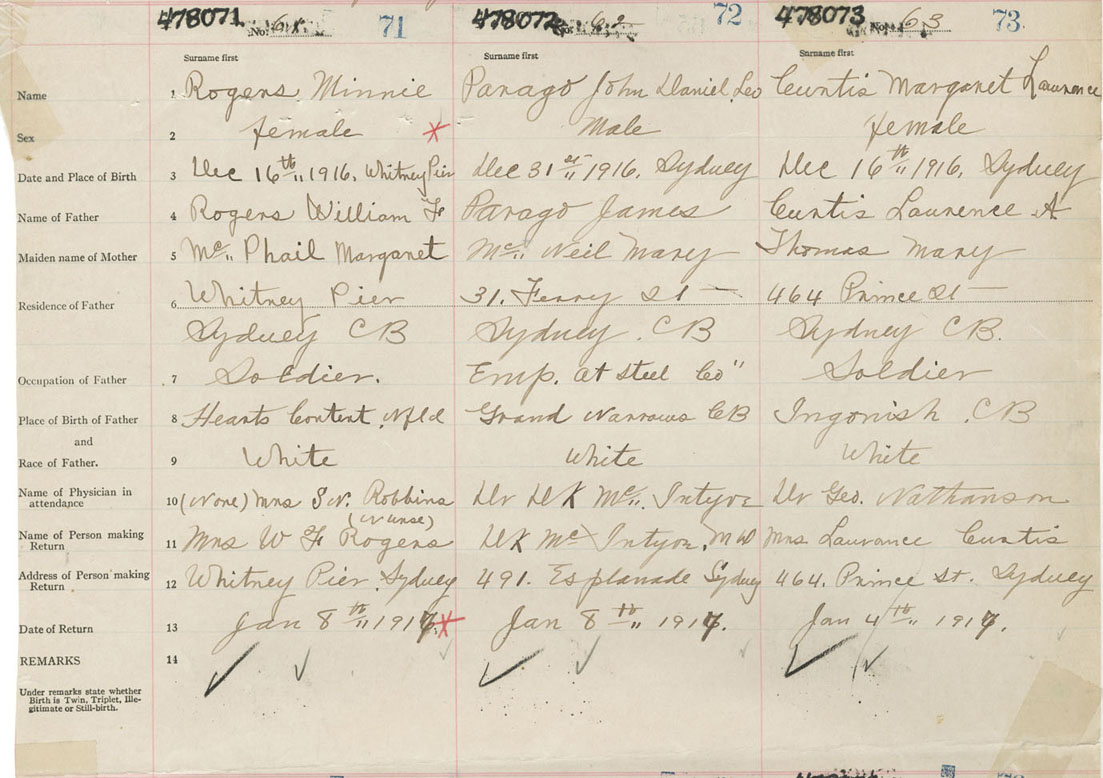 478071 No. 61. 71 478072 No. 62 72 478073 No. 63 73
Surname first Surname first Surname first
Name 1 Rogers Minnie Parago John Daniel Leo Curtis Margaret Laurence
Sex 2 female Male female
Date and Place of Birth 3 Dec 16th 1916. Whitney Pier Dec 31st 1916. Sydney Dec 16th 1916. Sydney
Name of Father 4 Rogers William F Parago James Curtis Laurence A
Maiden name of Mother 5 Mc Phail Margaret Mc Neil Mary Thomas Mary
Residence of Father 6 Whitney Pier 31. Ferry St 464 Prince St
Sydney CB Sydney. CB Sydney CB.
Occupation of Father 7 Soldier. Emp. at Steel Co" Soldier
Place of Birth of Father 8 Hearts Content, Nfld Grand Narrows CB Ingonish. CB
and
Race of Father. 9 White White White
Name of Physician in attendance 10 (None) Mrs S N. Robbins (Nurse) Dr D K Mc Intyre Dr Geo. Nathanson
Name of Person making Return 11 Mrs W F Rogers DK Mc Intyre, MD Mrs Laurance Curtis
Address of Person making Return 12 Whitney Pier. Sydney 491. Esplanade Sydney 464. Prince St. Sydney
Date of Return 13 Jan 8th 1917. Jan 8th 1917. Jan 4th 1917.
REMARKS 14
Under remarks state whether
Birth is Twin, Triplet, Ille-
gitimate or Still-birth.